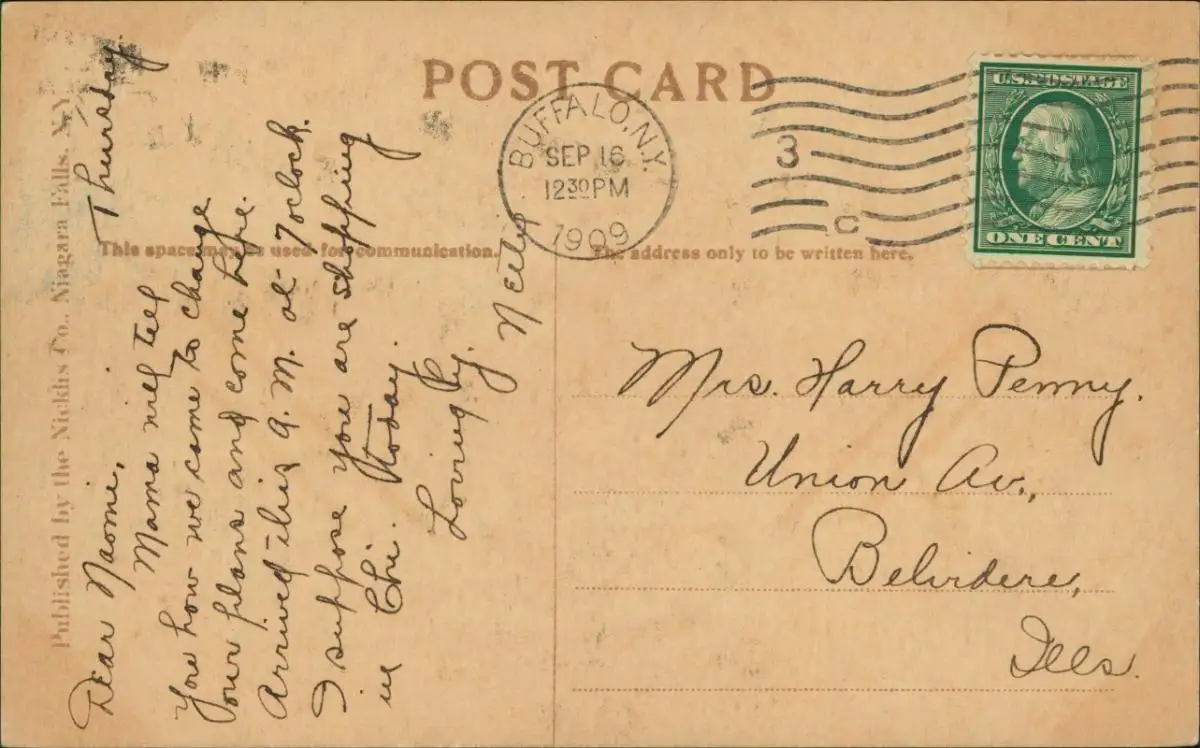 POST CARD
BUFFALO, N.Y.
SEP 16
12 30 PM
1909
3
C
U.S. POSTAGE
ONE CENT
Published by the Nicklis Co., Niagara Falls, N.Y.
This space may be used for communication.
The address only to be written here.
Thursday
Dear Naomi,
Mama will tell
you how we came to change
our plans and come here.
Arrived this A. M. at 7 oclock.
I suppose you are shopping
in Chi. today.
Lovingly.
Mrs. Harry Penny.
Union Av.,
Belvidere,
Ills.